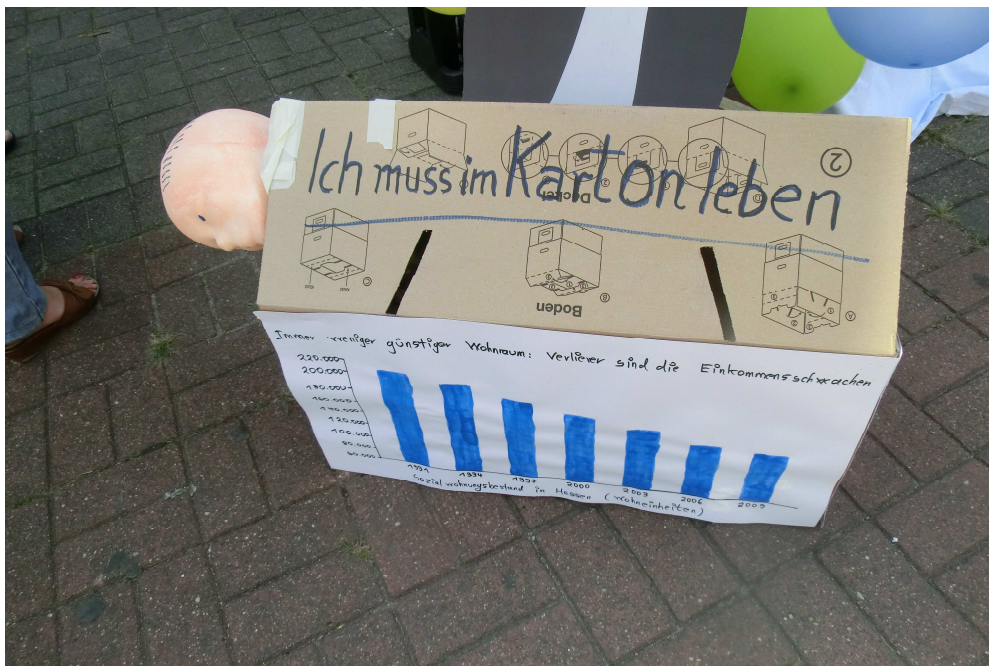 ②
Ich muss im Karton leben
Deckel
Boden
C
B
A
Immer weniger günstiger Wohnraum: Verlierer sind die Einkommensschwachen
220.000
200.000
180.000
160.000
140.000
120.000
100.000
80.000
60.000
1991 1994 1997 2000 2003 2006 2009
Sozialwohnungsbestand in Hessen (Wohneinheiten)